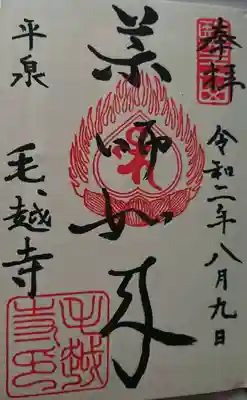 奉拝
令和二年八月九日
薬師如来
平泉
毛越寺
毛越寺印